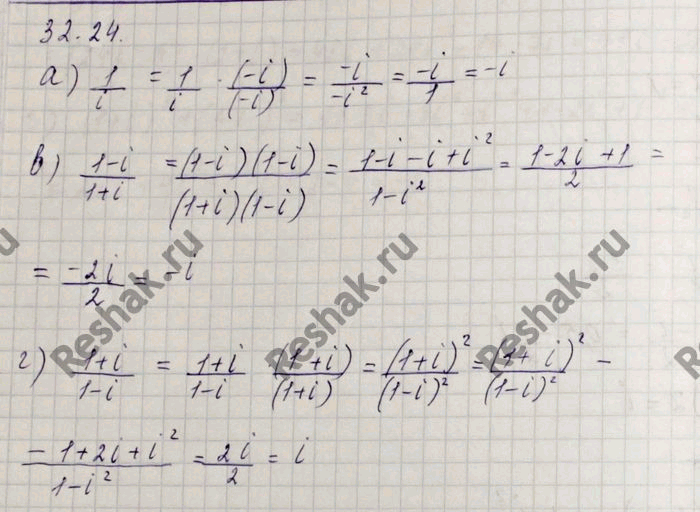 32.24.
а) 1/i = 1/i · (-i)/(-i) = -i/-i² = -i/1 = -i
в) 1-i/1+i = (1-i)(1-i)/(1+i)(1-i) = 1-i-i+i²/1-i² = 1-2i+1/2 =
= -2i/2 = -i
г) 1+i/1-i = 1+i/1-i (1+i)/(1+i) = (1+i)²/(1-i)² = (1+i)²/(1-i)² -
- 1+2i+i²/1-i² = 2i/2 = i
Reshak.ru
Reshak.ru
Reshak.ru